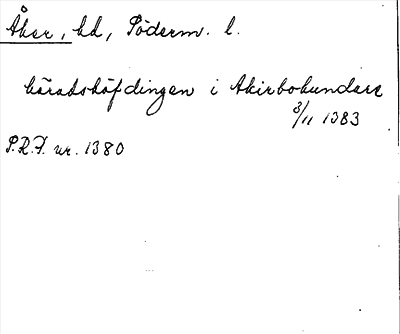 Åker, hd, Söderm. l.
häradshöfdingen i Akirbohundare
3/11 1383
S.R.P. nr. 1380